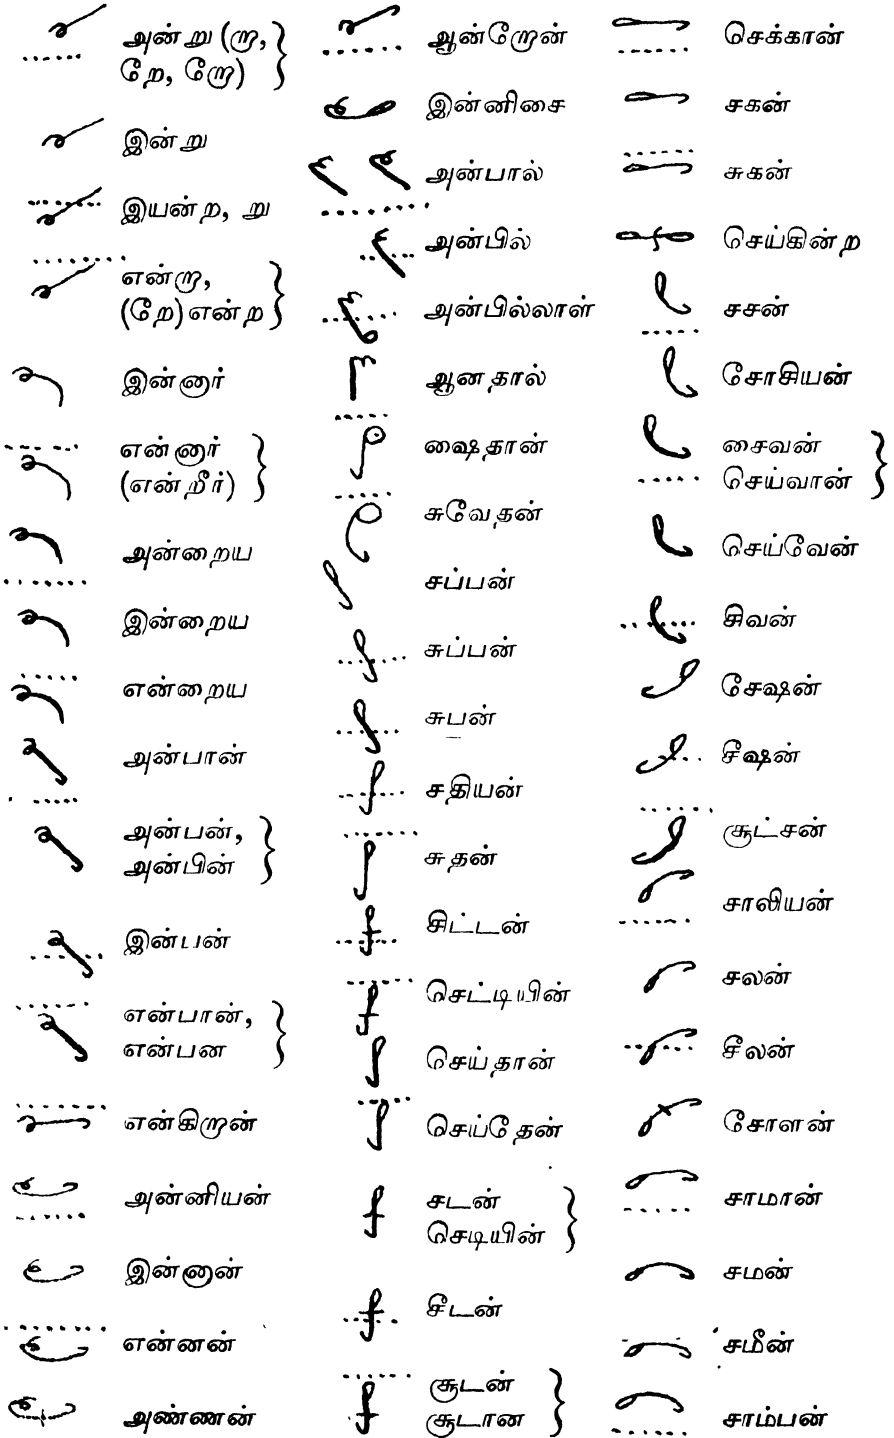 அன்று (றா,
றே, றோ)
இன்று
இயன்ற, று
என்றா,
(றே) என்ற
இன்னார்
என்னார்
(என்றீர்)
அன்றைய
இன்றைய
என்றைய
அன்பான்
அன்பன்,
அன்பின்
இன்பன்
என்பான்,
என்பன
என்கிறான்
அன்னியன்
இன்னான்
என்னன்
அண்ணன்
ஆன்றோன்
இன்னிசை
அன்பால்
அன்பில்
அன்பில்லாள்
ஆனதால்
ஷைதான்
சுவேதன்
சப்பன்
சுப்பன்
சுபன்
சதியன்
சுதன்
சிட்டன்
செட்டியின்
செய்தான்
செய்தேன்
சடன்
செடியின்
சீடன்
சூடன்
சூடான
செக்கான்
சகன்
சுகன்
செய்கின்ற
சசன்
சோசியன்
சைவன்
செய்வான்
செய்வேன்
சிவன்
சேஷன்
சீஷன்
சூட்சன்
சாலியன்
சலன்
சீலன்
சோளன்
சாமான்
சமன்
சமீன்
சாம்பன்